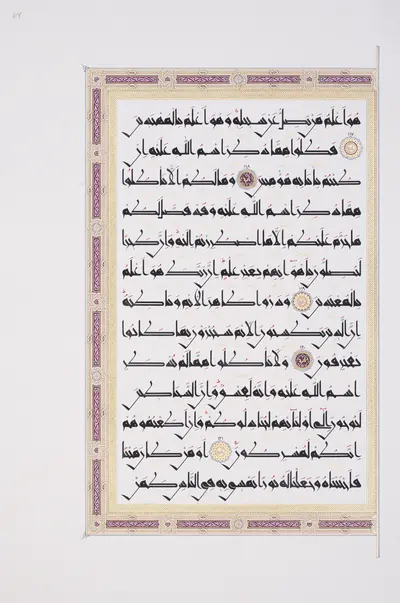 هو أعلم من يضل عن سبيله وهو أعلم بالمهتدين
فكلوا مما ذكر اسم الله عليه إن
كنتم بآياته مؤمنين وما لكم ألا تأكلوا
مما ذكر اسم الله عليه وقد فصل لكم
ما حرم عليكم إلا ما اضطررتم إليه وإن كثيرا
ليضلون بأهوائهم بغير علم إن ربك هو أعلم
بالمعتدين وذروا ظاهر الإثم وباطنه
إن الذين يكسبون الإثم سيجزون بما كانوا
يقترفون ولا تأكلوا مما لم يذكر
اسم الله عليه وإنه لفسق وإن الشياطين
ليوحون إلى أوليائهم ليجادلوكم وإن أطعتموهم
إنكم لمشركون أومن كان ميتا
فأحييناه وجعلنا له نورا يمشي به في الناس كمن